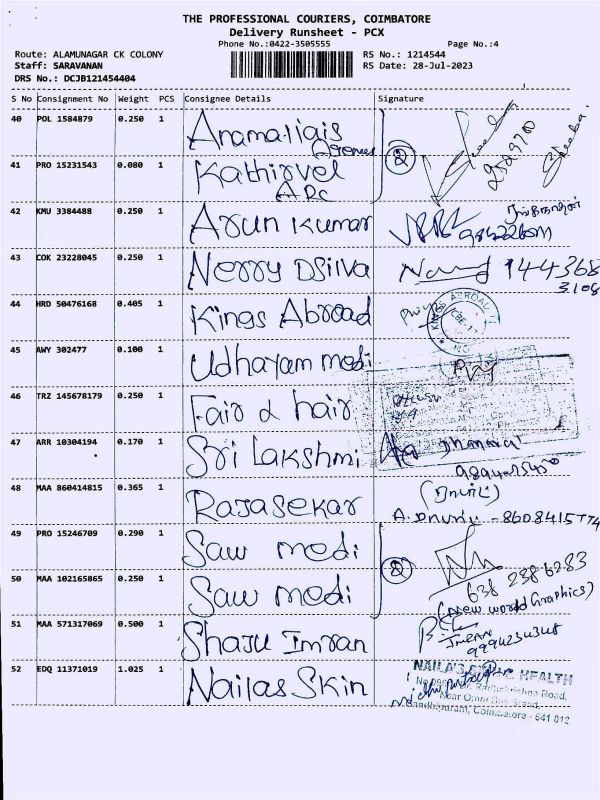 THE PROFESSIONAL COURIERS, COIMBATORE
Delivery Runsheet - PCX
Phone No.:0422-3505555 Page No.:4
Route: ALAMUNAGAR CK COLONY RS No.: 1214544
Staff: SARAVANAN RS Date: 28-Jul-2023
DRS No.: DCJB121454404
S No Consignment No Weight PCS Consignee Details Signature
40 POL 1584879 0.250 1 Anamaliais
2
41 PRO 15231543 0.080 1 Kathirvel
ARC
42 KMU 3384488 0.250 1 Arun Kumar
43 COK 23228045 0.250 1 Nerry Dsilva 144368
44 HRD 50476168 0.405 1 Kings Abroad
KINGS ABROAD
45 AWY 302477 0.100 1 Udhayam medi
46 TRZ 145678179 0.250 1 Fair & hair
47 ARR 10304194 0.170 1 Sri Lakshmi
48 MAA 860414815 0.365 1 Rajasekar
49 PRO 15246709 0.290 1 Saw medi
2
638 238 6283
50 MAA 102165865 0.250 1 Saw medi
(New world Graphics)
51 MAA 571317069 0.500 1 Shaju Imran
Imran
9994234348
52 EDQ 11371019 1.025 1 Nailas Skin
HEALTH
Radhakrishna Road,
Near Omni Bus Stand,
Gandhipuram, Coimbatore - 641 012